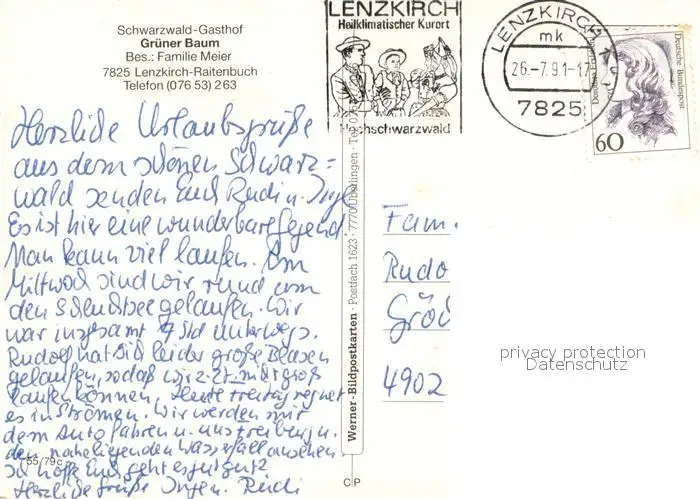 Schwarzwald-Gasthof
Grüner Baum
Bes.: Familie Meier
7825 Lenzkirch-Raitenbuch
Telefon (0 76 53) 2 63
LENZKIRCH
Heilklimatischer Kurort
Hochschwarzwald
LENZKIRCH
mk
26.-7.91-17
7825
Deutsche Bundespost
60
Herzliche Urlaubsgrüße
aus dem schönen Schwarz=
wald senden Euch Rudi u. Inge
Es ist hier eine wunderbare Gegend.
Man kann viel laufen. Am
Mittwoch sind wir rund um
den Schluchsee gelaufen. Wir
war insgesamt 7 Std unterwegs.
Rudolf hat sich leider große Blasen
gelaufen, sodaß wir z.Zt. nicht groß
laufen können. Heute Freitag regnet
es in Strömen. Wir werden mit
dem Auto fahren u. uns Freiburg u.
den naheliegenden Wasserfall ansehen.
Ich hoffe Euch geht es gut
Herzliche Grüße Inge u. Rudi
55/79c
Werner-Bildpostkarten · Postfach 1623 · 7770 Überlingen · Tel.
CP
Fam.
Rudo
Gröd
4902
privacy protection
Datenschutz